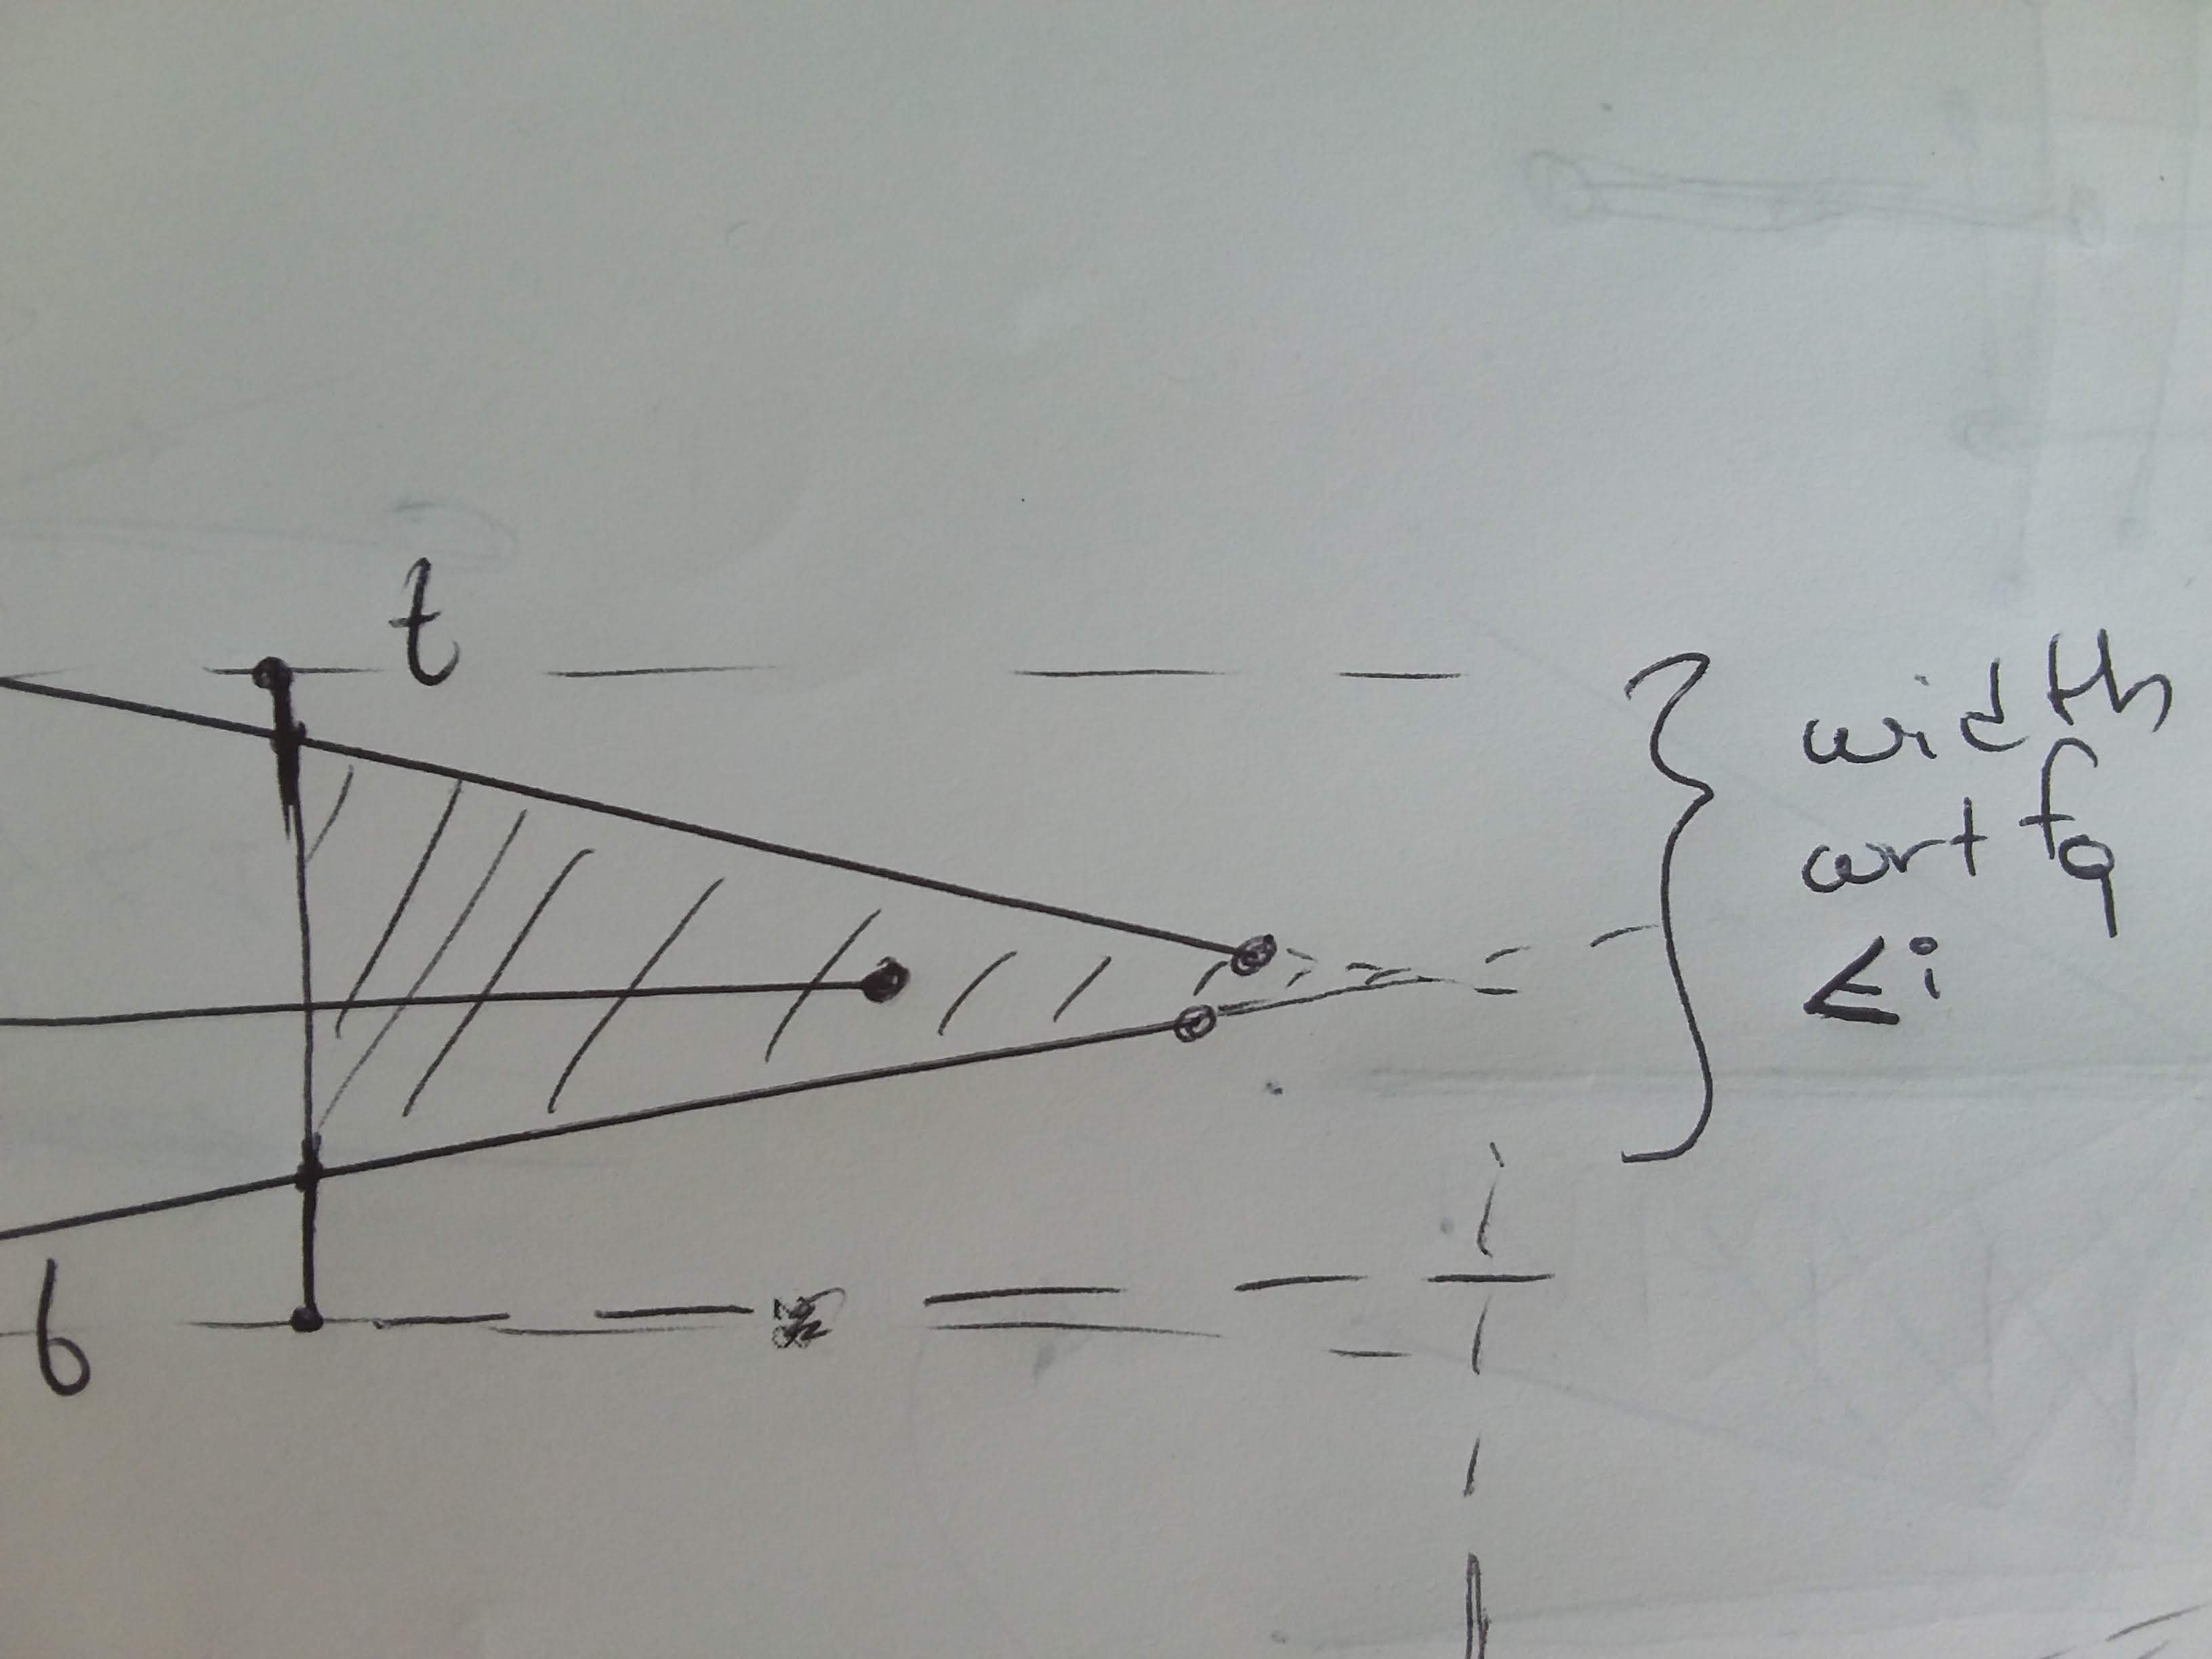 t
width
wrt fq
≤i
b